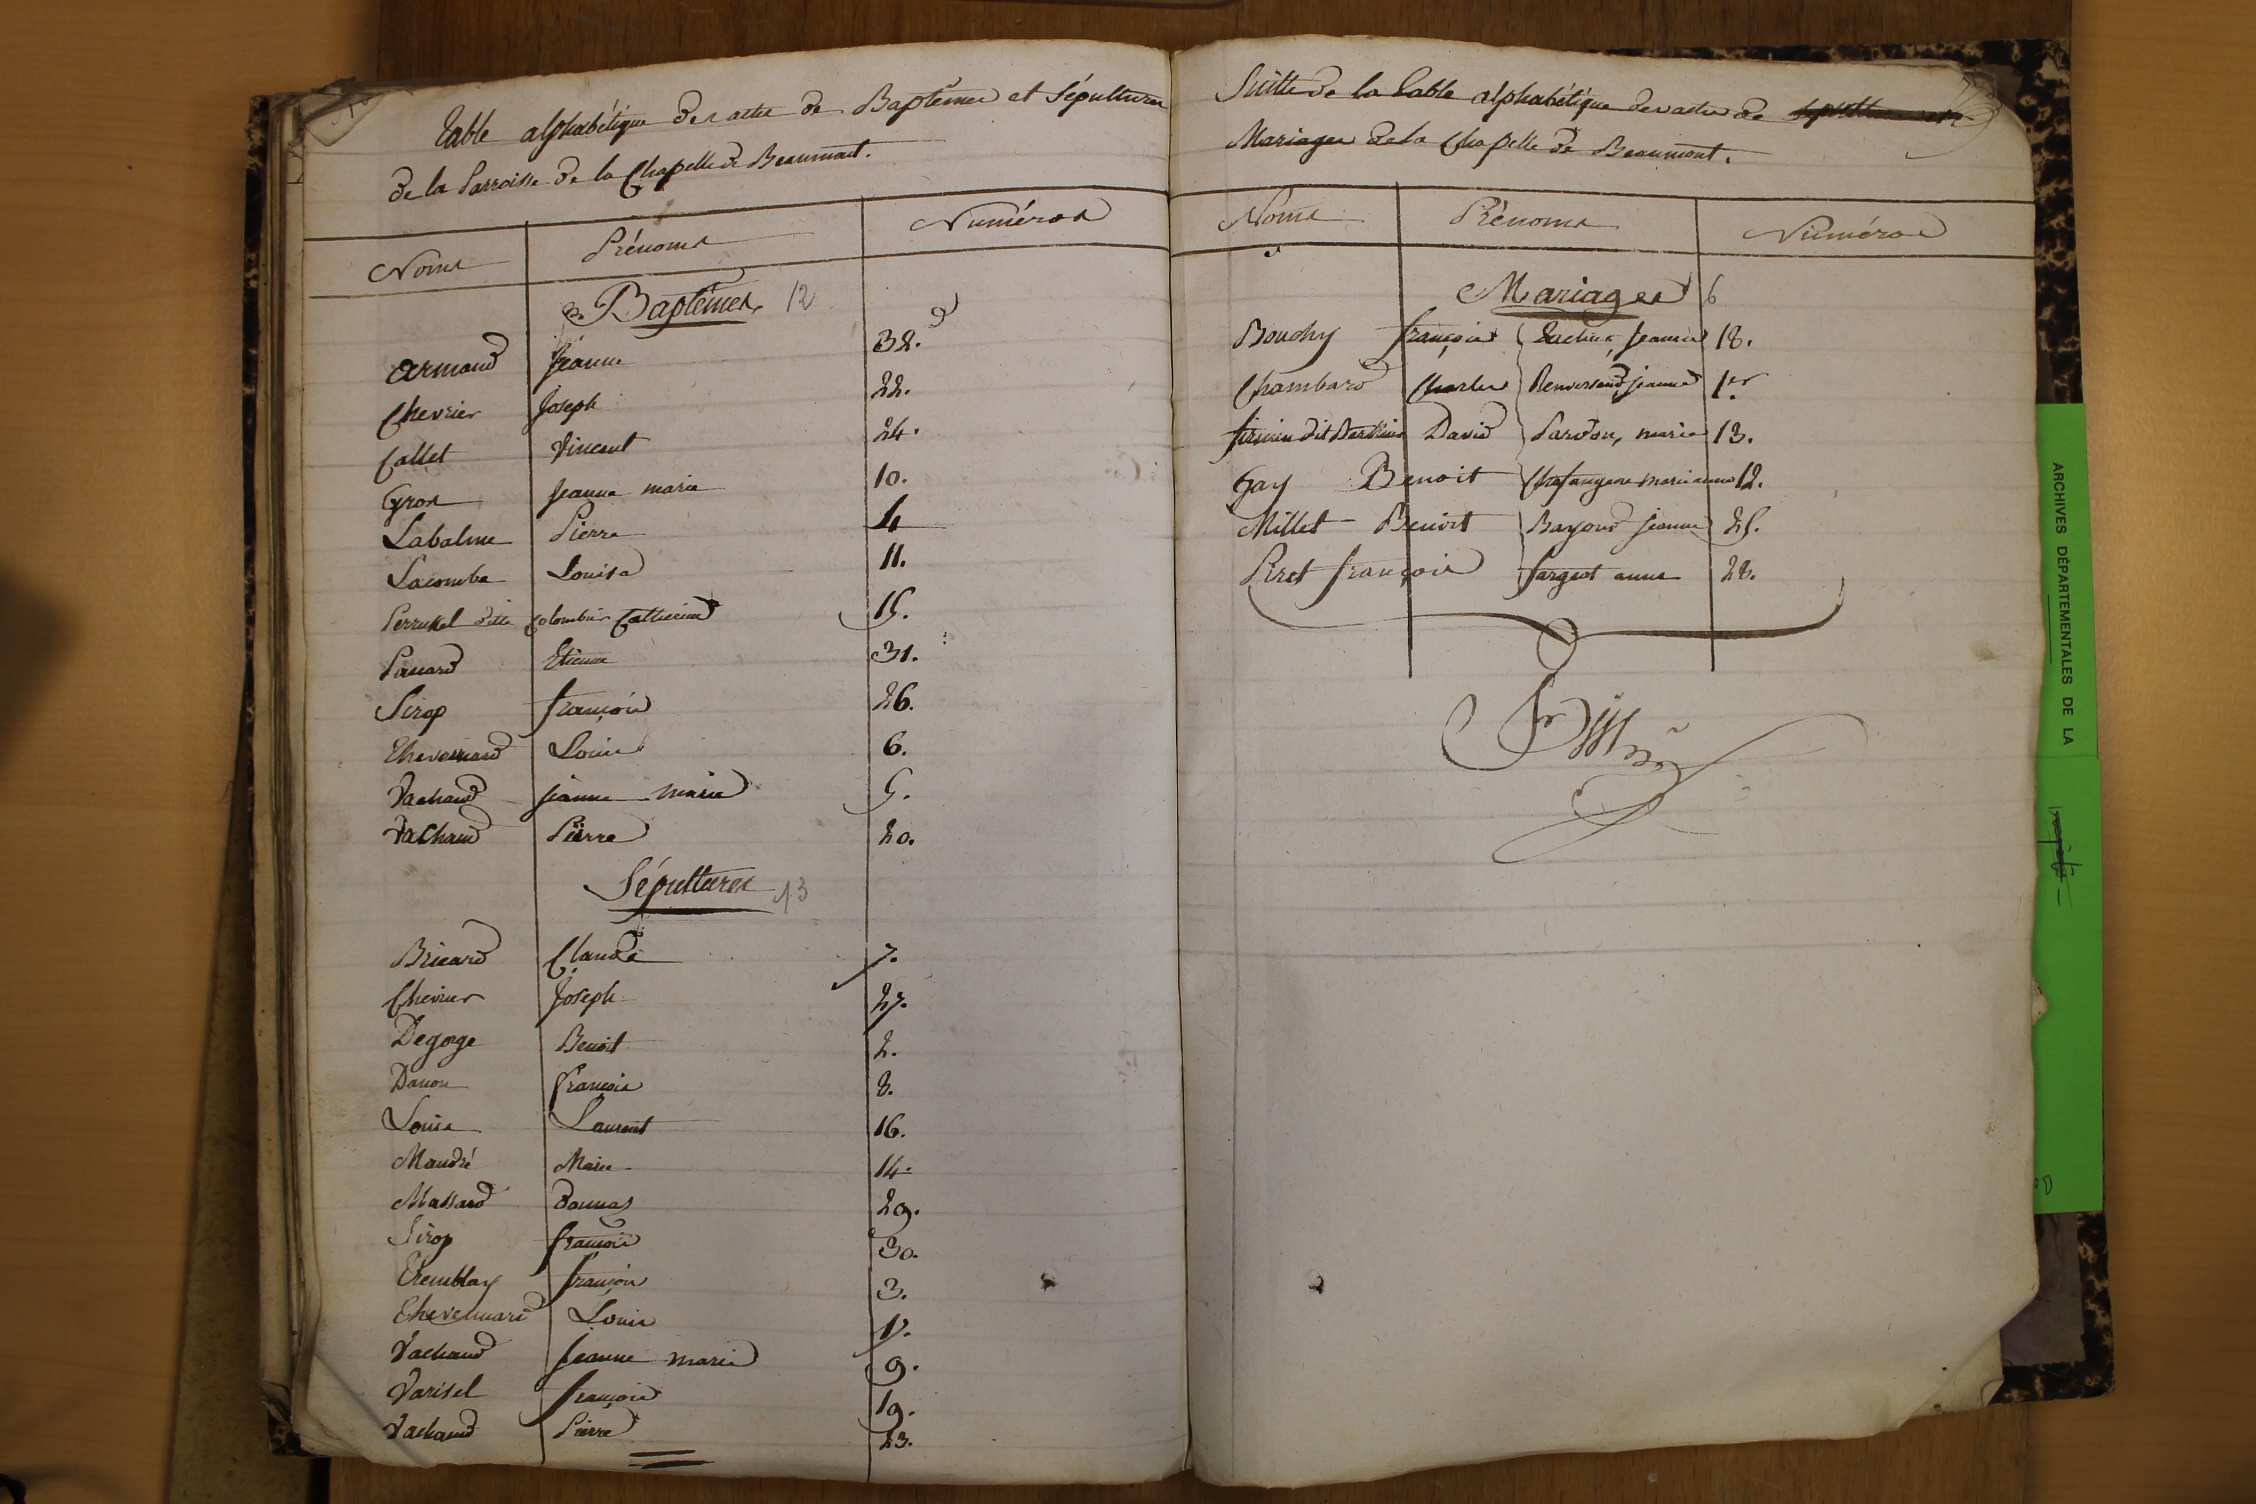 Table alphabétique des actes de Baptêmes et Sépultures
de la Parroisse de la Chapelle de Beaumont.
Noms Prénoms Numéros
Baptêmes 12
Armand Jeanne 32.
Chevrier Joseph 22.
Callet Vincent 24.
Gros Jeanne marie 10.
Labalme Pierre 4
Lacombe Louise 11.
dite Colombier Catherine 15.
Etienne 31.
Sirop françois 26.
Thevenard Louis 6.
Vachaud jeanne marie 5.
Vachaud Pierre 20.
Sépultures 13
Bricard Claude 7.
Chevrier Joseph 27.
Degorge Benoit 2.
Danon françois 8.
Louis Laurent 16.
Maudré Marie 14.
Massard 29.
Sirop françois 30.
Tremblay françois 3.
Thevenard Louis 17.
Vachaud Jeanne marie 9.
Varisel françois 19.
Vachaud Pierre 23.
Suitte de la table alphabétique des actes de
Mariages de la Chapelle de Beaumont.
Noms Prénoms Numéros
Mariages 6
Bouchy françois Jeanne 18.
Chambard Charles jeanne 1er
dit David Pardon, marie 13.
Gay Benoit marianne 12.
Millet Benoit Bayoud jeanne 25.
Piret françois fargeot anne 28.
ARCHIVES DÉPARTEMENTALES DE LA